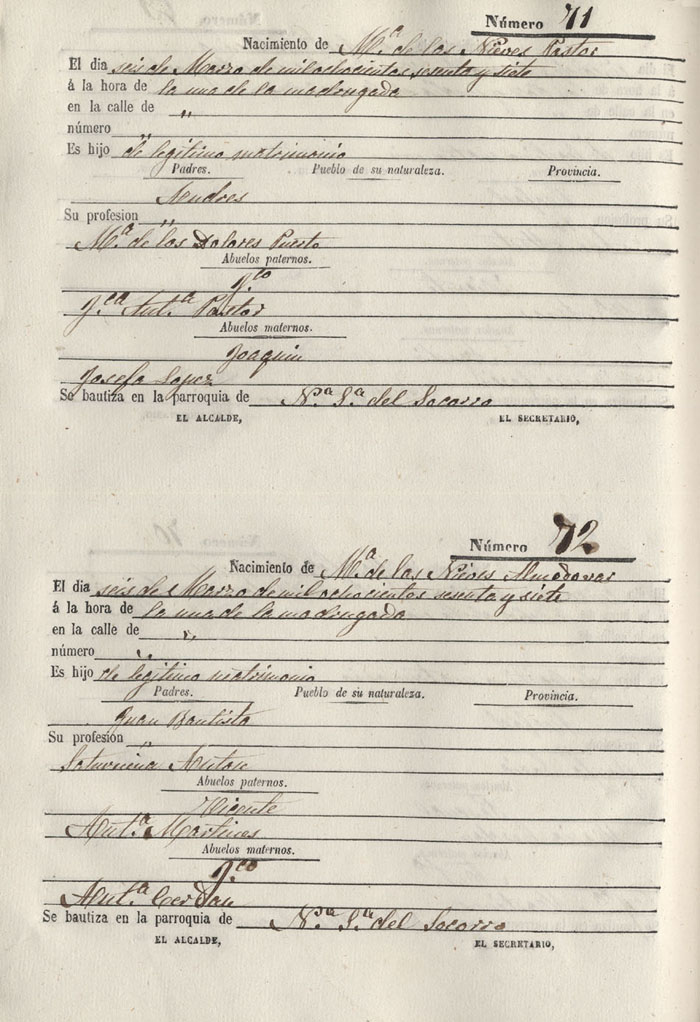 Número 71
Nacimiento de M.ª de las Nieves Pastor
El dia seis de Marzo de mil ochocientos sesenta y siete
á la hora de la una de la madrugada
en la calle de "
número "
Es hijo de legitimo matrimonio
Padres. Pueblo de su naturaleza. Provincia.
Andres
Su profesion "
M.ª de los Dolores Puerto
Abuelos paternos.
F.co
F.ca Ant.ª Pastor
Abuelos maternos.
Joaquin
Josefa Lopez
Se bautiza en la parroquia de N.ª S.ª del Socorro
EL ALCALDE, EL SECRETARIO,
Número 72
Nacimiento de M.ª de las Nieves Almodovar
El dia seis de Marzo de mil ochocientos sesenta y siete
á la hora de la una de la madrugada
en la calle de "
número "
Es hijo de legitimo matrimonio
Padres. Pueblo de su naturaleza. Provincia.
Juan Bautista
Su profesión "
Saturnina Anton
Abuelos paternos.
Vicente
Ant.ª Martines
Abuelos maternos.
F.co
Ant.ª Cerdan
Se bautiza en la parroquia de N.ª S.ª del Socorro
EL ALCALDE, EL SECRETARIO,